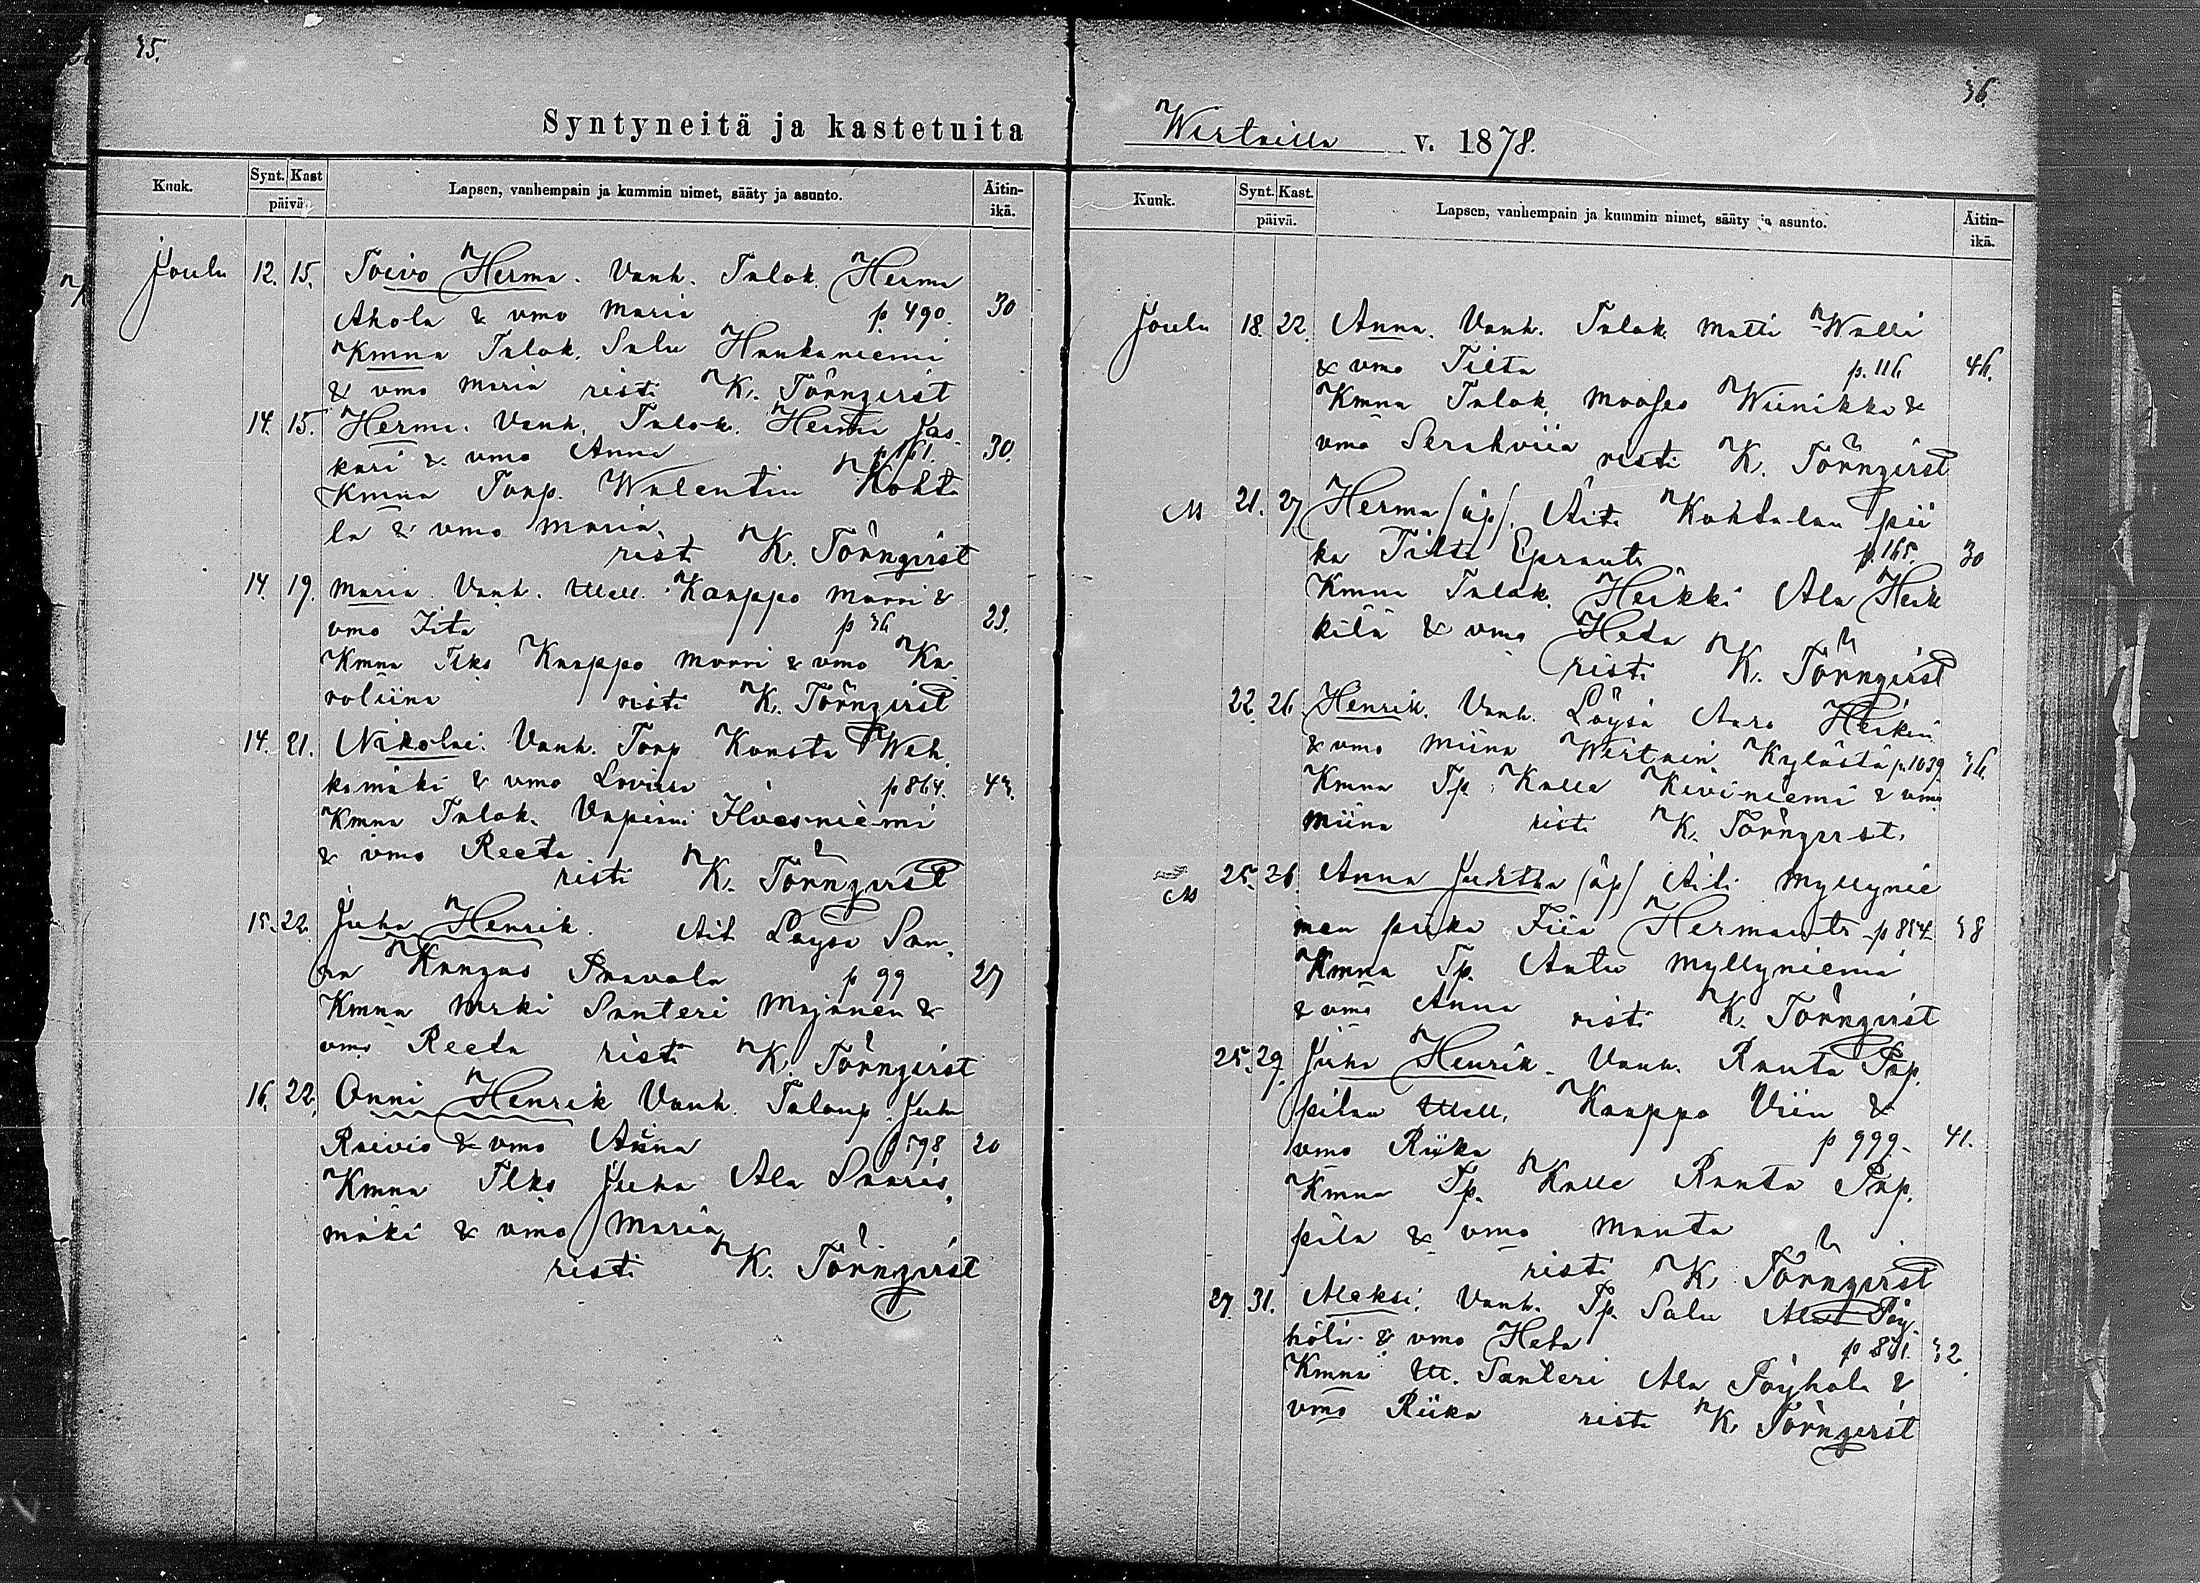 35.
Syntyneitä ja kastetuita
Kuuk. Synt. Kast päivä. Lapsen, vanhempain ja kummin nimet, sääty ja asunto. Äitin-ikä.
Joulu 12. 15. Toivo Herma. Vanh. Talok. Herma
Ahola & vmo Maria p. 490. 30
Kmna Talok. Salu Haukaniemi
& vmo Maria risti K. Törnqvist
14. 15. Hermi. Vanh. Talok. Hermi Jas-
kari & vmo Anna p 161. 30.
Kmna Torp. Walentin Kohta
la & vmo Maria
risti K. Törnqvist
14. 19. Maria Vanh. Kaappo Murri &
vmo Fita p 36 23.
Kmna Tlks Kaappo Murri & vmo Ka
roliina risti K. Törnqvist
14. 21. Nikolai. Vanh. Torp Konsta Weh
kamäki & vmo Lovisa p 864. 43.
Kmna Talok. Vapiani Ilvesniemi
& vmo Reeta
risti K. Törnqvist
15. 22. Juha Henrik. Äit Löysä San
na Kangas Saavala p 99 27
Kmna Mrki Santeri Majanen &
vmo Reeta risti K. Törnqvist
16. 22. Onni Henrik Vanh. Talonp. Juha
Raivio & vmo Anna p 598 20
Kmna Tlks Juha Ala Saaris
mäki & vmo Maria
risti K. Törnqvist
36.
Wirtailla v. 1878.
Kuuk. Synt. Kast. päivä. Lapsen, vanhempain ja kummin nimet, sääty ja asunto. Äitin-ikä.
Joulu 18 22. Anna. Vanh. Talok. Matti Walli
& vmo Tilta p. 116 46.
Kmna Talok. Mooses Wiinikka &
vmo Serahviia risti K. Törnqvist
M 21. 27 Herma (äp). Äiti Kohtalan pii
ka Tilta Epranti p. 165. 30
Kmna Talok. Heikki Ala Heik
kilä & vmo Heta
risti K. Törnqvist
22. 26 Henrik. Vanh. Löysä Aaro Heikin
& vmo Miina Wirtain Kylästä p 1039 36.
Kmna Tp. Kalle Kiviniemi & vmo
Miina risti K. Törnqvist.
M 25. 26. Anna Juditha (äp) Äiti Myllynie
men piika Fiia Hermanti p 854 38
Kmna Tp. Antu Myllyniemi
& vmo Anna risti K. Törnqvist
25. 29. Juha Henrik. Vanh. Ranta Pap.
pilan Kaappo Viin &
vmo Riika p 999. 41.
Kmna Tp. Kalle Ranta Pap.
pila & vmo Manta
risti K. Törnqvist
27. 31. Aleksi. Vanh. Tp. Salu Pöy
höli & vmo Heta 32.
Kmna Santeri Ala Pöyhölä &
vmo Riika risti K. Törnqvist